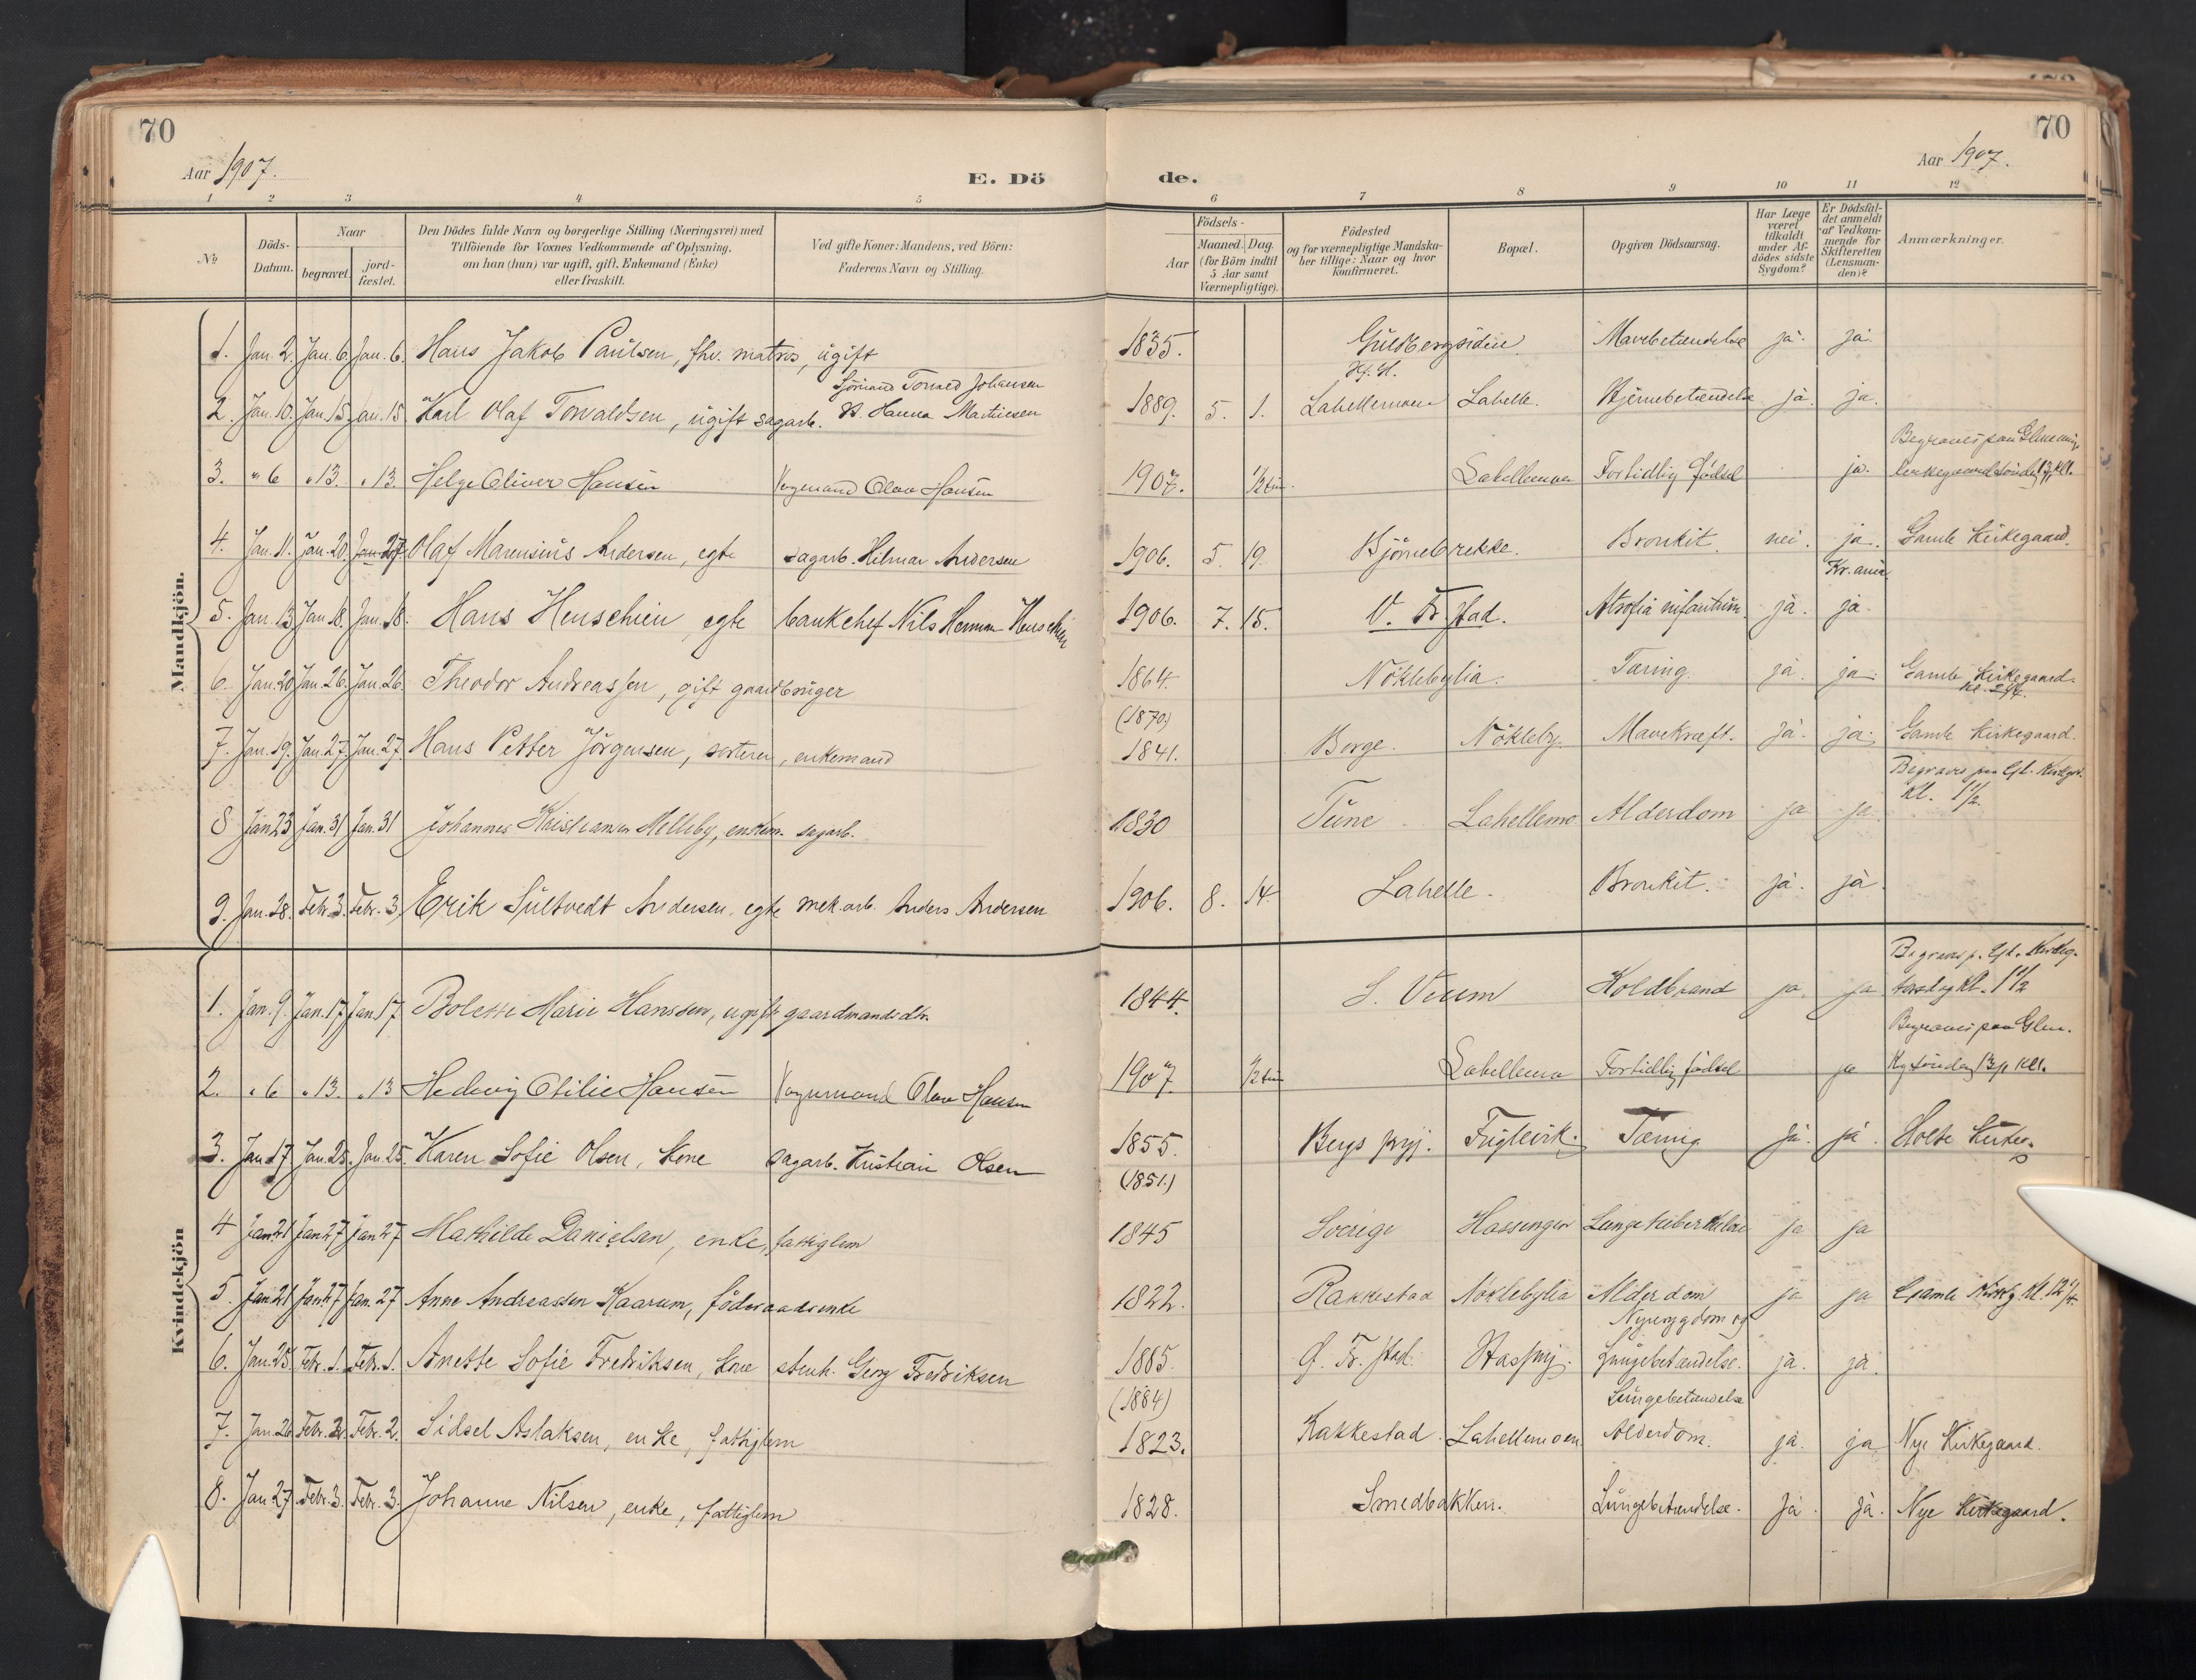 70
70
Aar 1907.
E. Dö
de.
Aar 1907.
1 2 3 4 5 6 7 8 9 10 11 12
№
Döds-
Datum.
Naar
begravet.
jord-
fæstet.
Den Dödes fulde Navn og borgerlige Stilling (Næringsvei) med
Tilföiende for Voxnes Vedkommende af Oplysning,
om han (hun) var ugift, gift, Enkemand (Enke)
eller fraskilt.
Ved gifte Koner: Mandens, ved Börn:
Faderens Navn og Stilling.
Födsels-
Aar
Maaned. Dag.
(for Börn indtil
5 Aar samt
Værnepligtige).
Födested
og for værnepligtige Mandska-
ber tillige: Naar og hvor
konfirmeret.
Bopæl.
Opgiven Dödsaarsag.
Har Læge
været
tilkaldt
under Af-
dödes sidste
Sygdom?
Er Dödsfal-
det anmeldt
af Vedkom-
mende for
Skifteretten
(Lensman-
den)?
Anmærkninger.
Mandkjön.
1. Jan. 2. Jan. 6. Jan. 6. Hans Jakob Paulsen, fhv. matros, ugift 1835. Guldbergsiden Mavebetændelse ja. ja.
Sjömand Torvald Johansen
2. Jan. 10. Jan. 15. Jan. 15. Karl Olaf Torvaldsen, ugift sagarb. H. Hanna Mathiesen 1889. 5. 1. Lahellemoen Lahelle. Hjernebetændelse ja. ja.
3. " 6 " 13. " 13. Helge Oliver Hansen Vognmand Olav Hansen 1907. 1/2 tim. Lahellemoen Fortidlig födsel ja.
4. Jan. 11. Jan. 20. Jan. 27. Olaf Marensius Andersen, egte sagarb. Hilmar Andersen 1906. 5. 19. Bjørnebrekke. Bronkit. nei. ja. Gamle Kirkegaard.
5. Jan. 13. Jan. 18. Jan. 18. Hans Henschien egte bankchef Nils Herman Henschien 1906. 7. 15. V. Fr.stad. Atrofia infantum. ja. ja.
6. Jan. 20. Jan. 26. Jan. 26. Theodor Andreassen, gift gaardbruger 1864. Nöklebylia. Tæring. ja. ja. Gamle Kirkegaard.
(1870.)
7. Jan. 19. Jan. 27. Jan. 27. Hans Petter Jörgensen, sorterer, enkemand 1841. Borge. Nökleby. Mavekræft. ja. ja. Gamle Kirkegaard.
Begraves paa Gl. Kirkgd.
Kl. 1 1/2.
8 Jan 23 Jan. 31 Jan. 31 Johannes Kristiansen Melleby, enkem. sagarb. 1830 Tune Lahellemo Alderdom ja ja
9. Jan. 28. Febr. 3. Febr. 3. Erik Sultvedt Andersen, egte mek. arb. Anders Andersen 1906. 8. 14. Lahelle. Bronkit. ja. ja.
Kvindekjön
1. Jan. 9. Jan. 17 Jan. 17 Bolette Marie Hanssen, ugift gaardmandsdtr. 1844. S. Veum Koldbrand ja ja
2. " 6 " 13. " 13 Hedevig Otilie Hansen Vognmand Olav Hansen 1907. 1/2 tim Lahellemo Fortidlig födsel ja
3. Jan. 17 Jan. 25. Jan. 25. Karen Sofie Olsen, kone sagarb. Kristian Olsen 1855. Bergs prgj. Fuglevik. Tæring ja. ja.
(1851.)
4 Jan 21 Jan 27 Jan 27 Mathilde Danielsen, enke, fattiglem 1845 Sverige Hassingen Lungetuberkulose ja ja
5. Jan. 21 Jan. 27 Jan. 27 Anne Andreassen Kaarum, föderaadsenke 1822. Rakkestad Nöklebylia Alderdom ja ja Gamle Kirkg. Kl. 12 1/4.
Nyresygdom og
6. Jan. 25. Febr. 1. Febr. 1. Anette Sofie Fredriksen, kone stenh. Georg Fredriksen 1885. G. Fr.stad. Lungebetændelse. ja. ja.
(1884)
Lungebetændelse
7. Jan. 26 Febr. 2. Febr. 2. Sidsel Aslaksen, enke, fattiglem 1823. Rakkestad. Lahellemoen Alderdom. ja. ja Nye Kirkegaard.
8. Jan 27. Febr. 3. Febr. 3. Johanne Nilsen, enke, fattiglem 1828. Smedbakken. Lungebetændelse. ja. ja. Nye Kirkegaard.